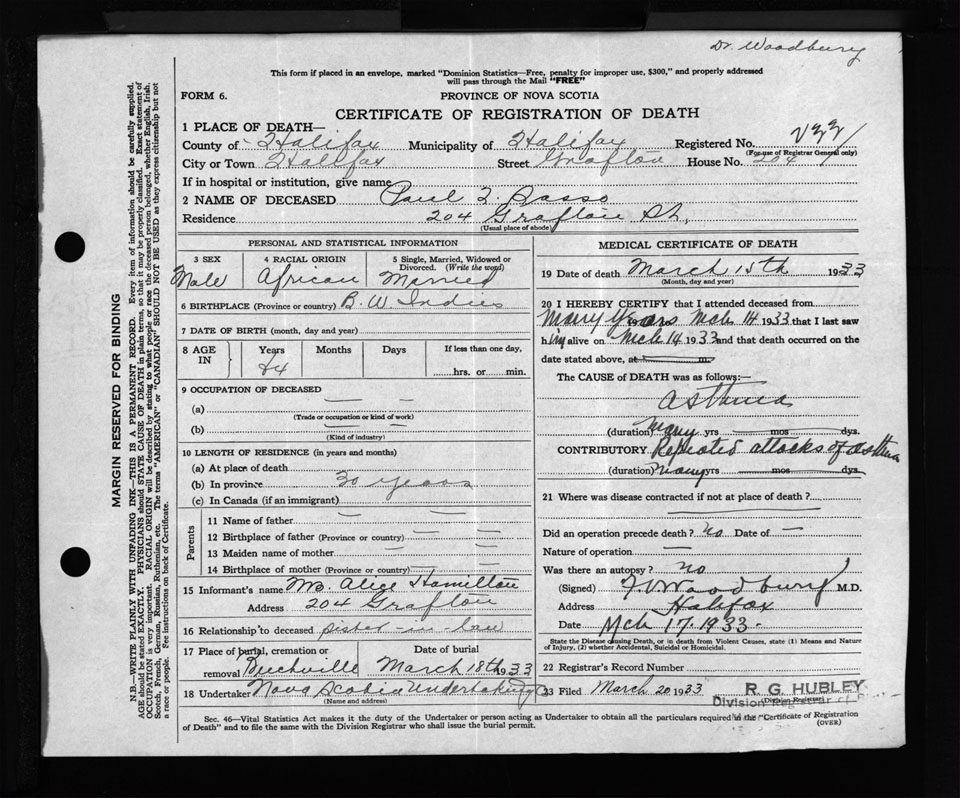 Dr. Woodbury
This form if placed in an envelope, marked "Dominion Statistics—Free, penalty for improper use, $300," and properly addressed
will pass through the Mail "FREE"
FORM 6.
PROVINCE OF NOVA SCOTIA
CERTIFICATE OF REGISTRATION OF DEATH
1 PLACE OF DEATH—
County of Halifax Municipality of Halifax Registered No.
(For use of Registrar General only)
City or Town Halifax Street Grafton House No. 204
If in hospital or institution, give name
2 NAME OF DECEASED Paul Basso
Residence 204 Grafton St,
(Usual place of abode)
PERSONAL AND STATISTICAL INFORMATION
3 SEX 4 RACIAL ORIGIN 5 Single, Married, Widowed or
Divorced. (Write the word)
Male African Married
6 BIRTHPLACE (Province or country) B. W. Indies
7 DATE OF BIRTH (month, day and year)
8 AGE IN Years Months Days If less than one day,
hrs. or min.
9 OCCUPATION OF DECEASED
(a) —
(Trade or occupation or kind of work)
(b) —
(Kind of industry)
10 LENGTH OF RESIDENCE (in years and months)
(a) At place of death
(b) In province 30 years
(c) In Canada (if an immigrant)
Parents
11 Name of father — —
12 Birthplace of father (Province or country) — —
13 Maiden name of mother — —
14 Birthplace of mother (Province or country) —
15 Informant's name Mrs. Alice Hamilton
Address 204 Grafton
16 Relationship to deceased sister-in-law
17 Place of burial, cremation or Date of burial
removal Beechville March 18th 1933
18 Undertaker Nova Scotia Undertaking Co
(Name and address)
MEDICAL CERTIFICATE OF DEATH
19 Date of death March 15th 1933
(Month, day and year)
20 I HEREBY CERTIFY that I attended deceased from
Many Years Mch 14 1933 that I last saw
him alive on Mch 14 1933 and that death occurred on the
date stated above, at m.
The CAUSE OF DEATH was as follows:—
Asthma
(duration) Many yrs mos dys.
CONTRIBUTORY Repeated attacks of asthma
(duration) Many yrs mos dys.
21 Where was disease contracted if not at place of death?
Did an operation precede death? No Date of —
Nature of operation —
Was there an autopsy? No
(Signed) Woodbury M.D.
Address Halifax
Date Mch 17.1933.
State the Disease Causing Death, or in death from Violent Causes, state (1) Means and Nature
of Injury, (2) whether Accidental, Suicidal or Homicidal.
22 Registrar's Record Number
23 Filed March 20 1933 R. G. HUBLEY
Division Registrar of
(Division Registrar)
Sec. 46—Vital Statistics Act makes it the duty of the Undertaker or person acting as Undertaker to obtain all the particulars required in the "Certificate of Registration
of Death" and to file the same with the Division Registrar who shall issue the burial permit.
(OVER)
MARGIN RESERVED FOR BINDING
N.B.—WRITE PLAINLY WITH UNFADING INK—THIS IS A PERMANENT RECORD. Every item of information should be carefully supplied.
AGE should be stated EXACTLY. PHYSICIANS should STATE CAUSE OF DEATH in plain terms, so that it may be properly classified. Exact statement of
OCCUPATION is very important. RACIAL ORIGIN will be described by stating to what people or race the deceased person belonged, whether English, Irish,
Scotch, French, German, Russian, Ruthenian, etc. The terms "AMERICAN" or "CANADIAN" SHOULD NOT BE USED as they express citizenship but not
a race or people. See instructions on back of Certificate.